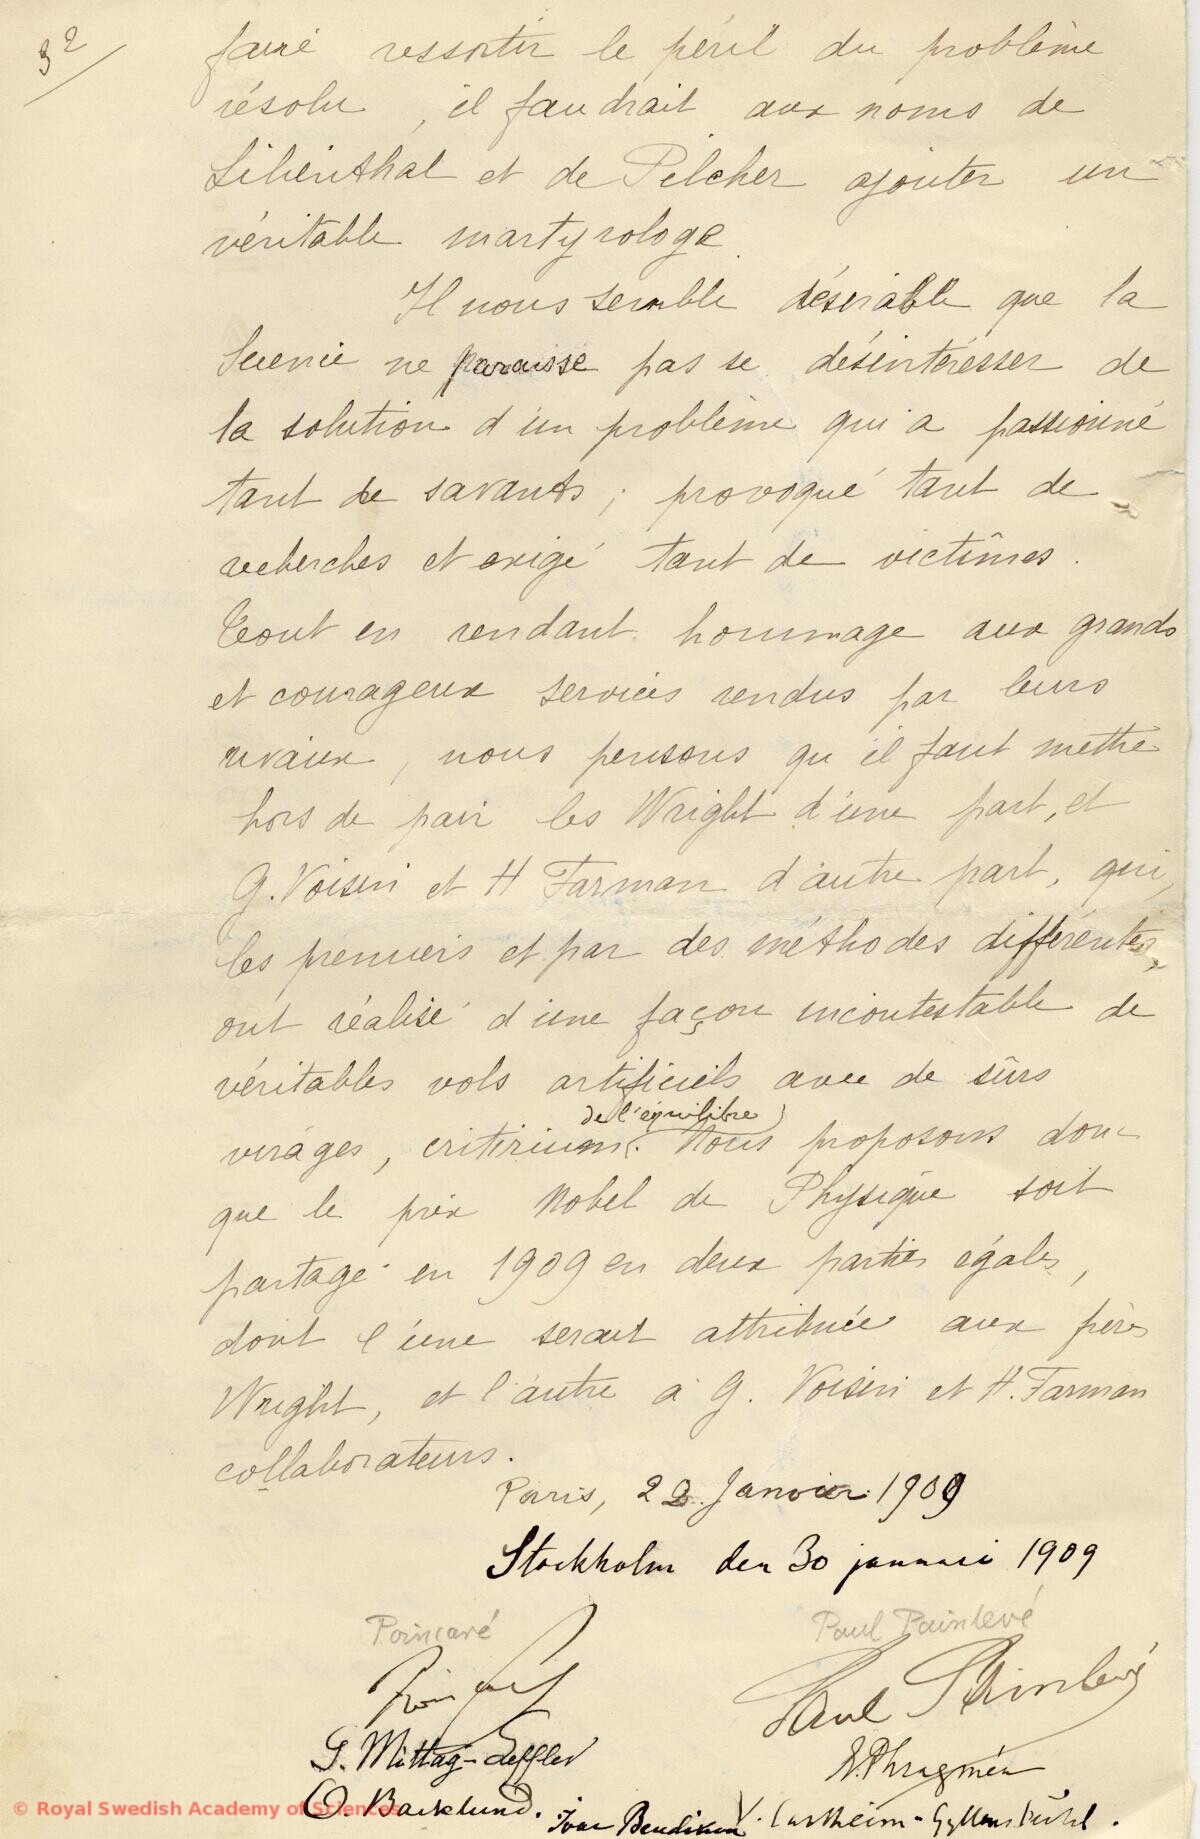 32
faire ressortir le péril du problème
résolu, il faudrait aux noms de
Lilienthal et de Pilcher ajouter un
véritable martyrologe
Il nous semble désirable que la
Science ne paraisse pas se désintéresser de
la solution d'un problème qui a passionné
tant de savants, provoqué tant de
recherches et exigé tant de victimes.
Tout en rendant hommage aux grands
et courageux services rendus par leurs
rivaux, nous pensons qu'il faut mettre
hors de pair les Wright d'une part, et
G. Voisin et H Farman d'autre part, qui,
les premiers et par des méthodes différentes,
ont réalisé d'une façon incontestable de
véritables vols artificiels avec de sûrs
de l'équilibre
virages, critérium. Nous proposons donc
que le prix Nobel de Physique soit
partagé en 1909 en deux parties égales,
dont l'une serait attribuée aux frères
Wright, et l'autre à G. Voisin et H. Farman
collaborateurs.
Paris, 22 Janvier 1909
Stockholm den 30 januari 1909
Poincaré Paul Painlevé
Poincaré Paul Painlevé
G. Mittag-Leffler E. Phragmén
O Backlund. Ivar Bendixson V. Carlheim-Gyllensköld.
© Royal Swedish Academy of Sciences